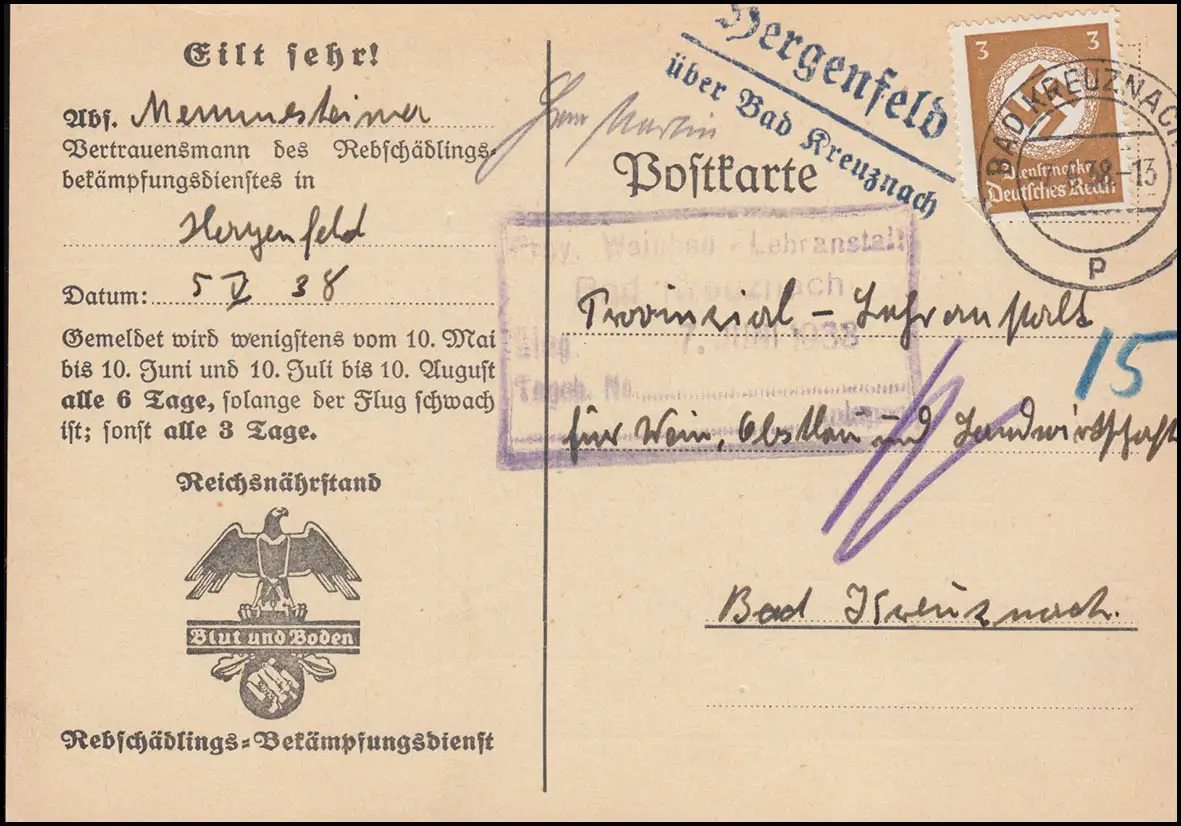 Eilt sehr!
Abs.
Vertrauensmann des Rebschädlings-
bekämpfungsdienstes in
Hergenfeld
Datum: 5 V 38
Gemeldet wird wenigstens vom 10. Mai
bis 10. Juni und 10. Juli bis 10. August
alle 6 Tage, solange der Flug schwach
ist; sonst alle 3 Tage.
Reichsnährstand
Blut und Boden
Rebschädlings-Bekämpfungsdienst
Hergenfeld
über Bad Kreuznach
3 3
Deutsches Reich
BAD KREUZNACH
38.-13
p
Herrn Martin
Postkarte
Prov. Weinbau-Lehranstalt
Bad Kreuznach
Eing. 7. 1938
Tageb. No
Provinzial-Lehranstalt
15
für Wein, Obstbau und Landwirtschaft
Bad Kreuznach.